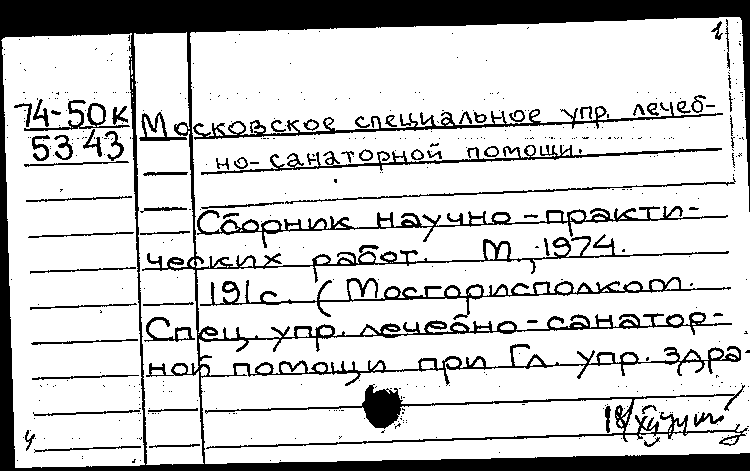 1
74-50к
53 43
Московское специальное упр. лечеб-
но-санаторной помощи.
Сборник научно-практи-
ческих работ. М., 1974.
191с. (Мосгорисполком.
Спец. упр. лечебно-санатор-
ной помощи при Гл. упр. здра-
18/XII
ч